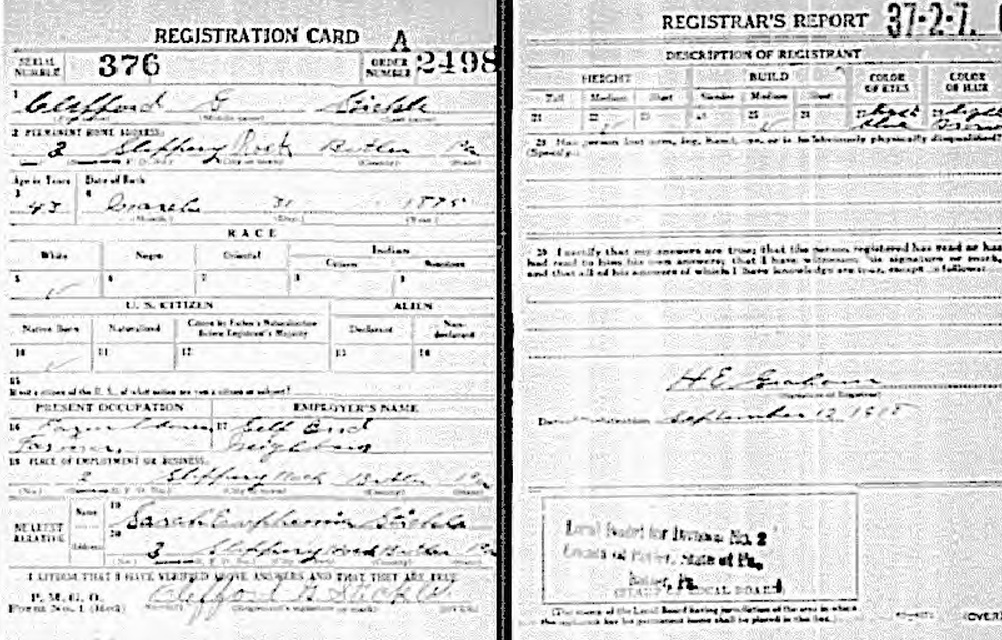 REGISTRATION CARD
A
SERIAL NUMBER 376 ORDER NUMBER 2498
1 Clifford G Stickle
(Last name)
2 PERMANENT HOME ADDRESS:
3 Slippery Rock Butler Pa
Age in Years Date of Birth
3 43 4 March 31 1875
(Month) (Day) (Year)
RACE
White Negro Oriental Indian
Citizen Noncitizen
5 6 7 8 9
U. S. CITIZEN ALIEN
Native Born Naturalized Citizen by Father's Naturalization Before Registrant's Majority Declarant Non-declarant
10 11 12 13 14
15
If not a citizen of the U. S., of what nation are you a citizen or subject?
PRESENT OCCUPATION EMPLOYER'S NAME
16 17 Self and
Farmer, Neighbors
18 PLACE OF EMPLOYMENT OR BUSINESS:
Slippery Rock Butler Pa
(No.) (City or town) (County) (State)
NEAREST RELATIVE
Name 19 Sarah Euphemia Stickle
Address 20 3 Slippery Rock Butler Pa
I AFFIRM THAT I HAVE VERIFIED ABOVE ANSWERS AND THAT THEY ARE TRUE
P. M. G. O.
Form No. 1 (Red) Clifford G Stickle
(Registrant's signature or mark) (OVER)
REGISTRAR'S REPORT 37-2-7.
DESCRIPTION OF REGISTRANT
HEIGHT BUILD COLOR OF EYES COLOR OF HAIR
Tall Medium Short Slender Medium Stout
21 22 23 24 25 26 27 Light Blue 28 Light Brown
29 Has person lost arm, leg, hand, eye, or is he obviously physically disqualified?
(Specify.)
30 I certify that my answers are true; that the person registered has read or has
had read to him his own answers; that I have witnessed his signature or mark,
and that all of his answers of which I have knowledge are true, except as follows:
H E Graham
(Signature of Registrar)
Date of Registration September 12, 1918
Local Board for Division No. 2
County of Butler, State of Pa.,
Butler, Pa.
(STAMP OF LOCAL BOARD)
(The stamp of the Local Board having jurisdiction of the area in which
the registrant has his permanent home shall be placed in this box.)
(OVER)